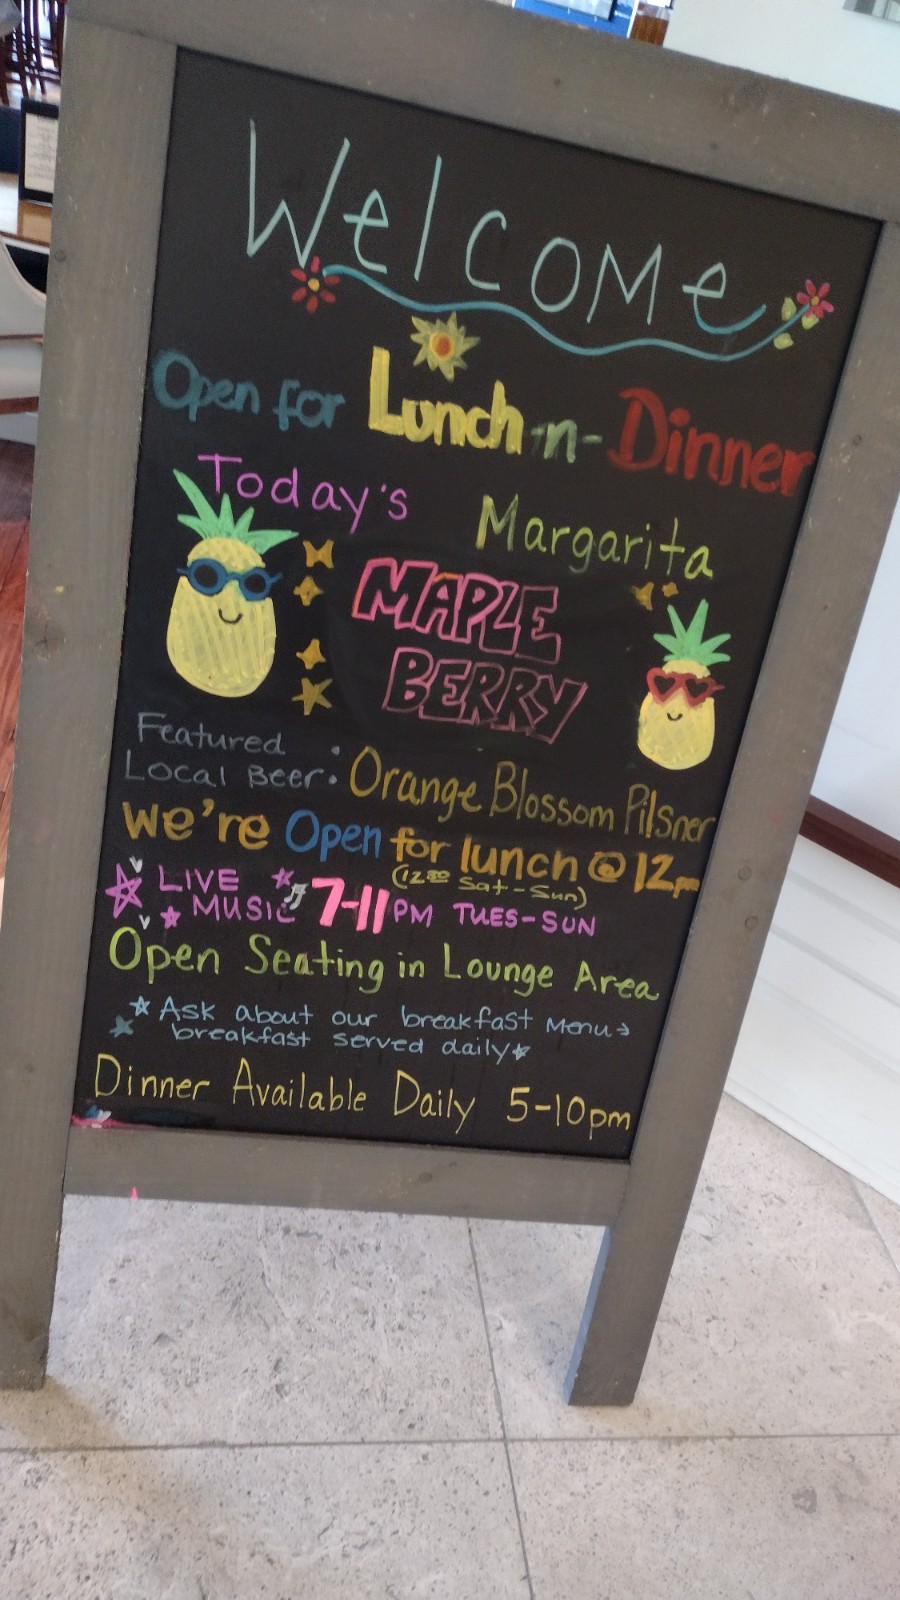 Welcome
Open for Lunch -n- Dinner
Today's Margarita
MAPLE
BERRY
Featured
Local Beer: Orange Blossom Pilsner
We're Open for lunch @ 12pm
(12:00 Sat-Sun)
LIVE
MUSIC 7-11 PM TUES-SUN
Open Seating in Lounge Area
Ask about our breakfast menu →
breakfast served daily
Dinner Available Daily 5-10pm